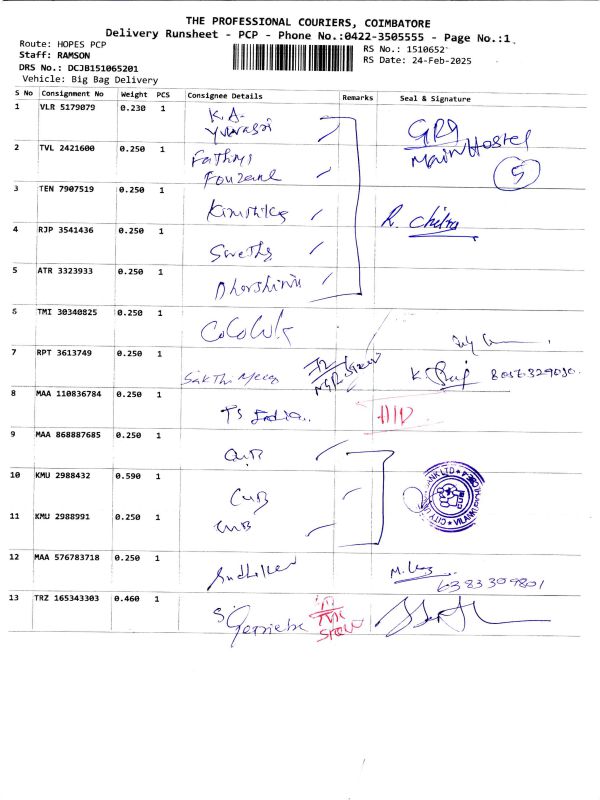 THE PROFESSIONAL COURIERS, COIMBATORE
Delivery Runsheet - PCP - Phone No.:0422-3505555 - Page No.:1
Route: HOPES PCP
RS No.: 1510652
Staff: RAMSON
RS Date: 24-Feb-2025
DRS No.: DCJB151065201
Vehicle: Big Bag Delivery
S No Consignment No Weight PCS Consignee Details Remarks Seal & Signature
1 VLR 5179079 0.230 1 K.A-
Yuvarasri
GRG
Main Hostel
2 TVL 2421600 0.250 1 Fathys
Fouzane
5
3 TEN 7907519 0.250 1
R. Chitra
4 RJP 3541436 0.250 1 Swetha
5 ATR 3323933 0.250 1 Dharshini
6 TMI 30340825 0.250 1
7 RPT 3613749 0.250 1 Sakthi
K.
8 MAA 110836784 0.250 1 TS India
9 MAA 868887685 0.250 1 CUB
10 KMU 2988432 0.590 1 CUB
11 KMU 2988991 0.250 1 CUB
12 MAA 576783718 0.250 1
6383309801
13 TRZ 165343303 0.460 1